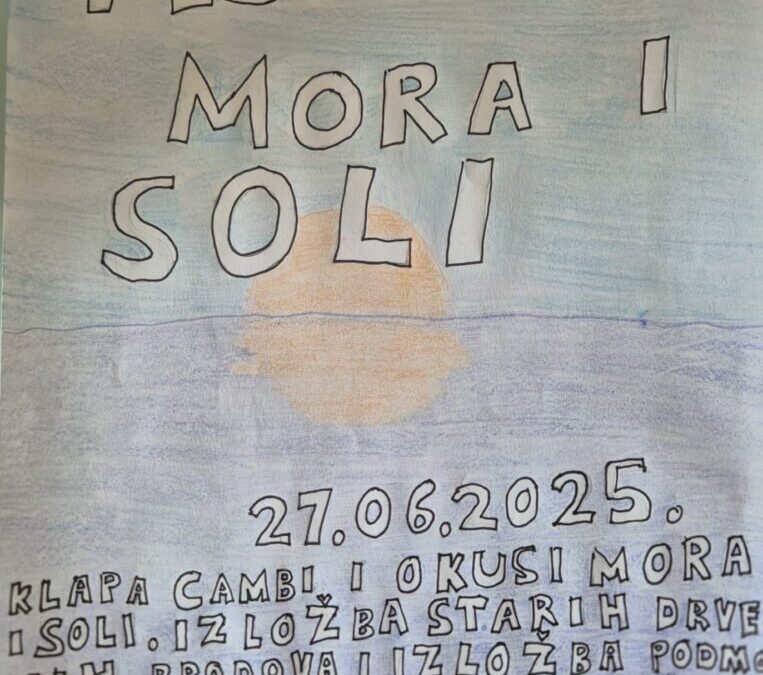 MORA I
SOLI
27.06.2025.
KLAPA CAMBI I OKUSI MORA
I SOLI. IZLOŽBA STARIH DRVE
BRODOVA I IZLOŽBA PODMO